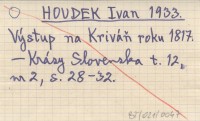 HOUDEK Ivan 1933.
Výstup na Kriváň roku 1817.
— Krásy Slovenska t. 12,
nr 2, s. 28-32.